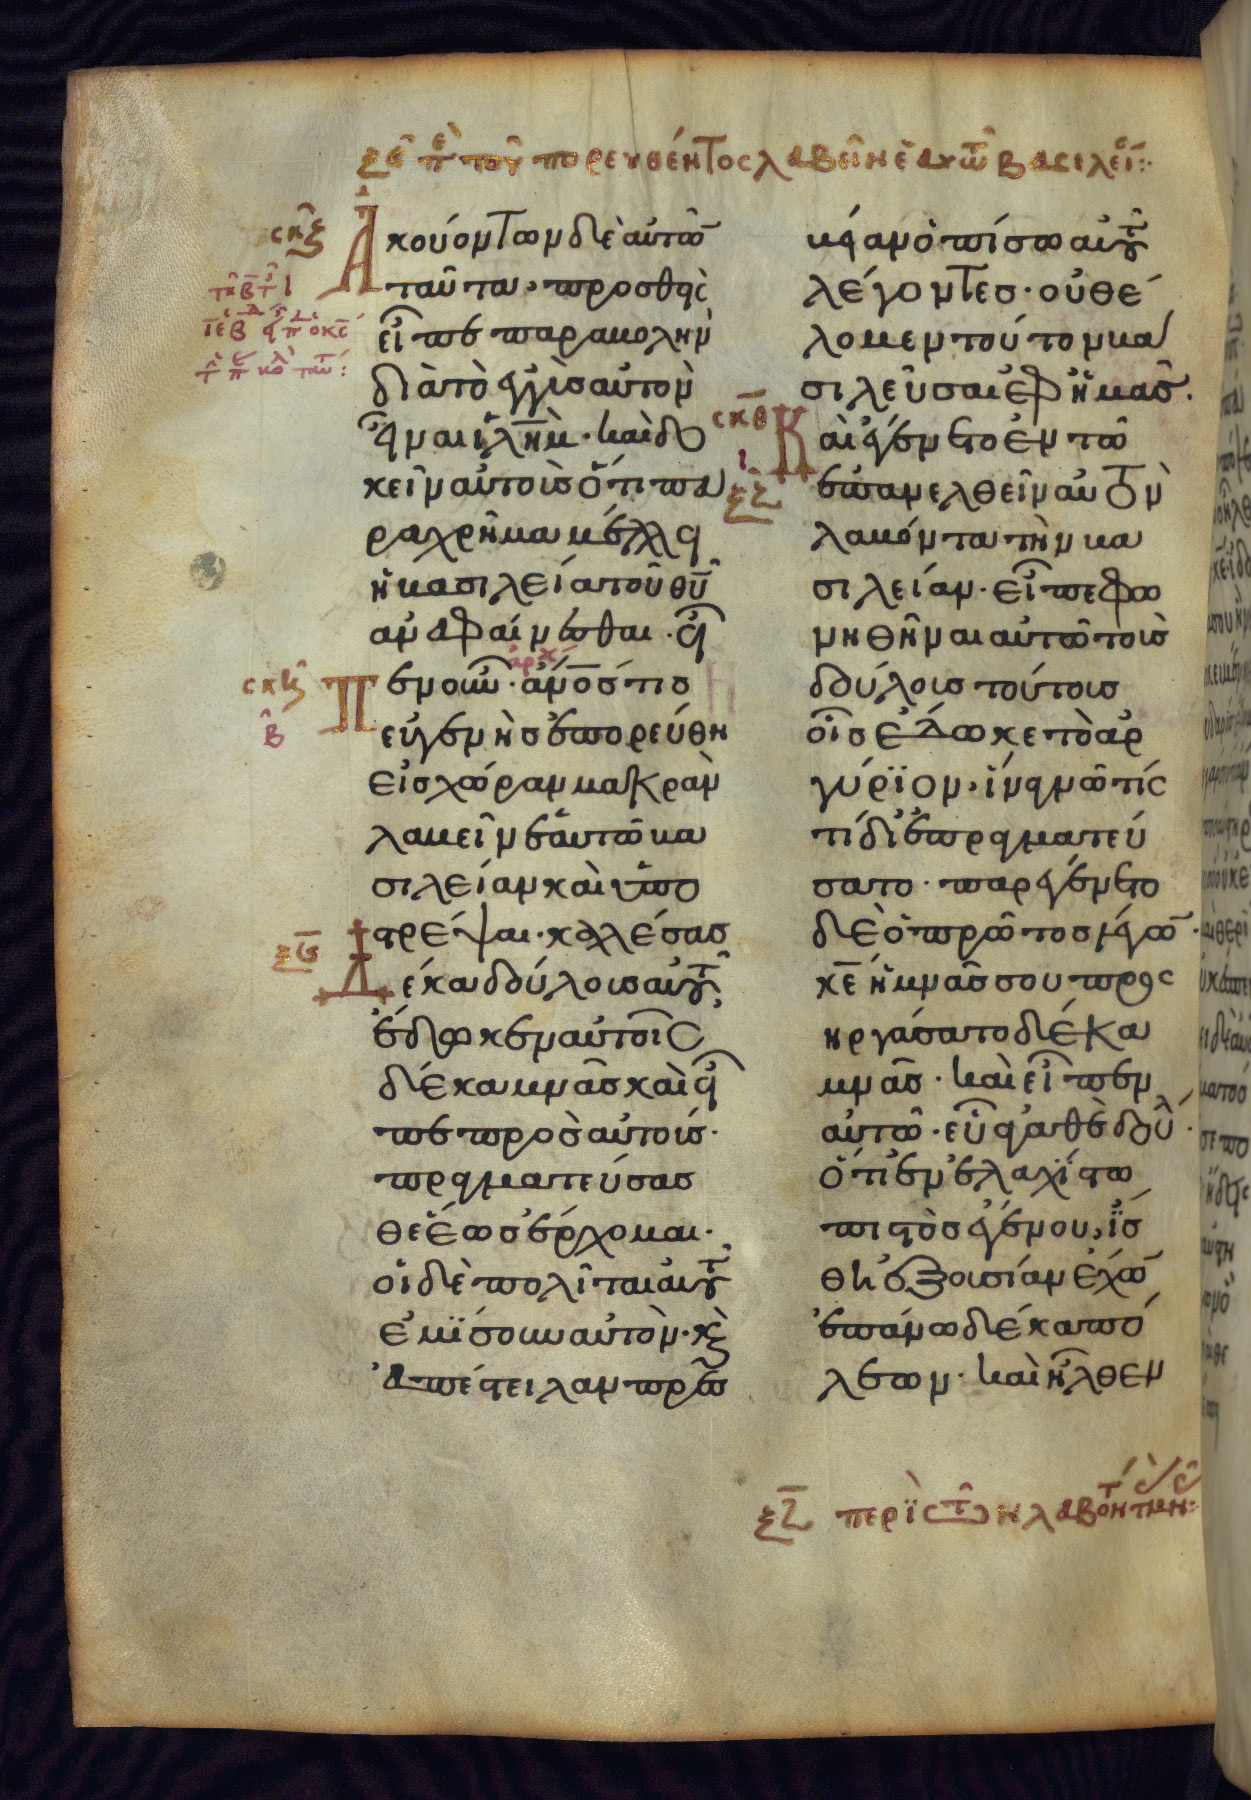 ξϛ π τοῦ πορευθέντος λαβεῖν ἑαυτῶ βασιλεί:
Ἀκουόντων δὲ αὐτῶ
ταῦτα, προσθεὶς
εἶπε παραβολὴν
διὰ τὸ ἐγγὺς αὐτὸν
εἶναι ἱλὴμ· καὶ δο
κεῖν αὐτοῖς ὅτι πα
ραχρῆμα μέλλει
ἡ βασιλεία τοῦ θῦ
ἀναφαίνεσθαι· εἶ
πεν οὖν· ἄνος τις
εὐγενὴς ἐπορεύθη
εἰς χώραν μακρὰν
λαβεῖν ἑαυτῶ βα
σιλείαν καὶ ὑπο
στρέψαι· καλέσας
δέκα δούλους αὐτοῦ
ἔδωκεν αὐτοῖς
δέκα μνᾶς καὶ εἶ
πε πρὸς αὐτούς·
πραγματεύσασ
θε ἕως ἔρχομαι·
οἱ δὲ πολῖται αὐτοῦ
ἐμίσουν αὐτόν· κὶ
ἀπέστειλαν πρεσ
βείαν ὀπίσω αὐτοῦ
λέγοντες· οὐ θέ
λομεν τοῦτον βα
σιλεῦσαι ἐφ ἡμᾶς.
Καὶ ἐγένετο ἐν τῶ
ἐπανελθεῖν αὐτὸν
λαβόντα τὴν βα
σιλείαν· εἶπε φω
νηθῆναι αὐτῶ τοὺς
δούλους τούτους
οἷς ἔδωκε τὸ ἀρ
γύριον, ἵνα γνῶ τίς
τί διεπραγματεύ
σατο· παρεγένετο
δὲ ὁ πρῶτος λέγω·
κε ἡ μνᾶς σου προς
ηργάσατο δέκα
μνᾶς· καὶ εἶπεν
αὐτῶ· εὖ ἀγαθὲ δοῦλ·
ὅτι ἐν ἐλαχίστω
πιστὸς ἐγένου, ἴσ
θι ἐξουσίαν ἔχω
ἐπάνω δέκα πό
λεων· καὶ ἦλθεν
σκζ
σκη
β
ξϛ
σκθ
ι
ξζ
ἀρχ
ξζ περὶ τῶν λαβόντ